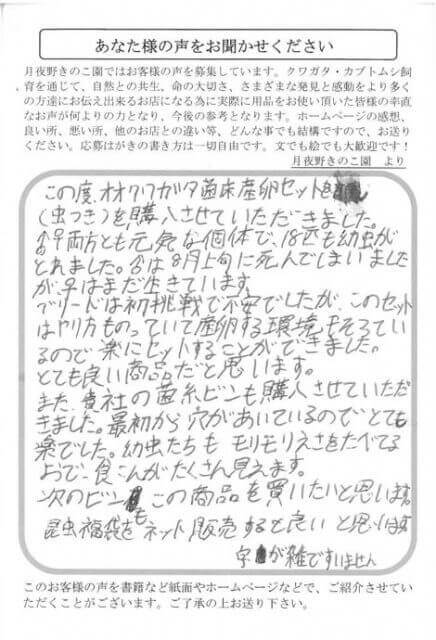 あなた様の声をお聞かせください
月夜野きのこ園ではお客様の声を募集しています。クワガタ・カブトムシ飼
育を通じて、自然との共生、命の大切さ、さまざまな発見と感動をより多く
の方達にお伝え出来るお店になる為に実際に用品をお使い頂いた皆様の率直
なお声が何よりの力となり、今後の参考となります。ホームページの感想、
良い所、悪い所、他のお店との違い等、どんな事でも結構ですので、お送り
ください。応募はがきの書き方は一切自由です。文でも絵でも大歓迎です！
月夜野きのこ園　より
この度、オオクワガタ菌床産卵セットを
(虫つき)を購入させていただきました。
♂♀両方とも元気な個体で、18匹も幼虫が
とれました。♂は8月上旬に死んでしまいました
が♀はまだ生きています。
ブリードは初挑戦で不安でしたが、このセット
はやり方ものっていて産卵する環境もそろってい
るので楽にセットすることができました。
とても良い商品だと思います。
また、貴社の菌糸ビンも購入させていただ
きました。最初から穴があいているのでとても
楽でした。幼虫たちも モリモリえさをたべてる
おで、食こんがたくさん見えます。
次のビンも この商品を買いたいと思います。
昆虫福袋を ネット販売すると良い と思います
字が雑ですいません
このお客様の声を書籍など紙面やホームページなどで、ご紹介させてい
ただくことがございます。ご了承の上お送り下さい。